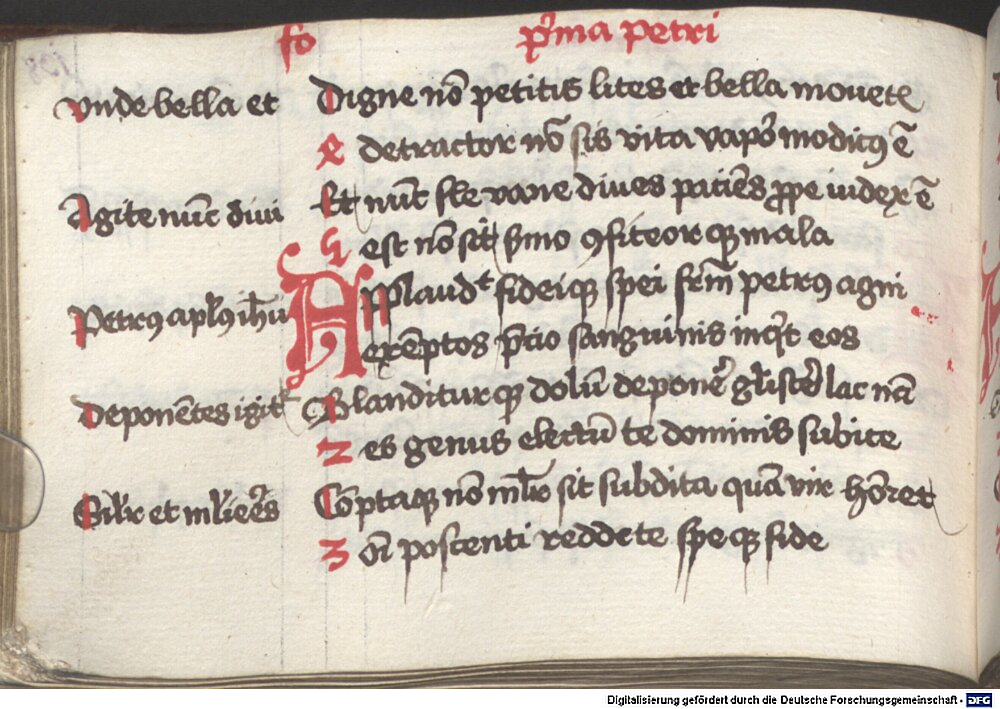 fo prima petri
vnde bella et Digne nō petitis lites et bella mouetꝭ
e detractor nō sis vita vapor modicꝰ ē
Agite nūc diui Et nūc fle vane diues patiēs ꝓpe iudex ē
h est nō sit sermo ꝯfiteor mala
Petrꝰ aplꝰ ihu Applaudt fidei spei frm petrꝰ agni
exēptos p̄cio sanguinis inqͥt eos
Deponētes igit Blanditur dolū deponer lac
2 es genus electū te dominis subice
Silr et mlieres Cōptaqꝫ nō mlr sit subdita quā vir honret
3 oī poscenti reddete spe fide
Digitalisierung gefördert durch die Deutsche Forschungsgemeinschaft - DFG